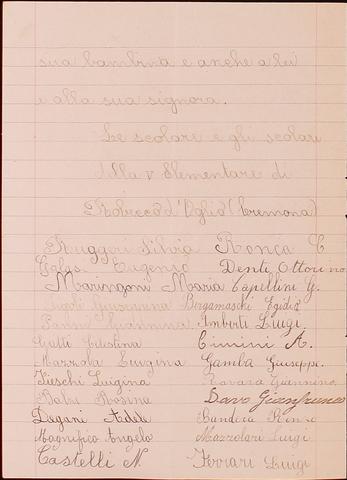 sua bambina e anche a lei
e alla sua signora.
Le scolare e gli scolari
della V Elementare di
Robecco d'Oglio (Cremona)
Ruggeri Silvia Ronca C
Eugenio Denti Ottorino
Maringoni Maria Capellini G.
Giovanna Bergamaschi Egidio
Giannina Amberti Luigi
Gatti Celestina Cimini A.
Mazzola Luigina Gamba Giuseppe.
Fieschi Luigina Ravara Giannino
Rosina Davo Gianfranco
Degani Adele Bandera Renzo
Magnifico Angelo Mazzolari Luigi
Castelli N. Ferrari Luigi